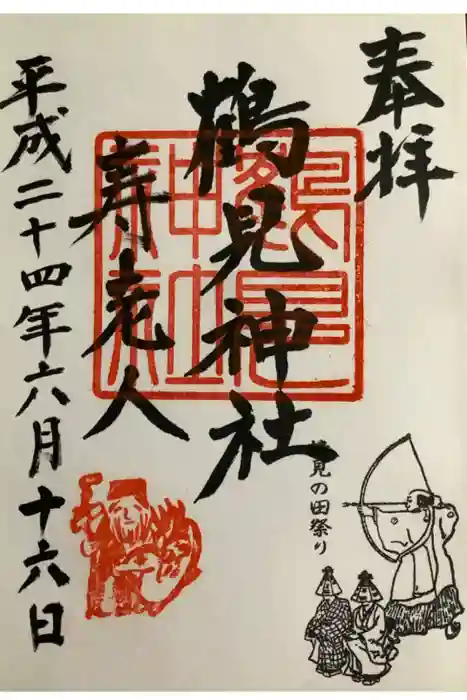 奉拝
鶴見神社
寿老人
平成二十四年六月十六日
見の田祭り
鶴見神社